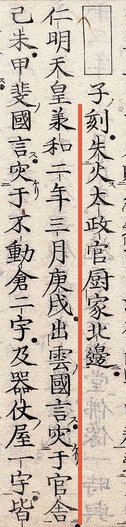 子刻失火太政官厨家北邊
仁明天皇承和二年三月庚戌出雲國言灾于官舎
己未甲斐國言灾于不動倉二宇及器仗屋一宇皆